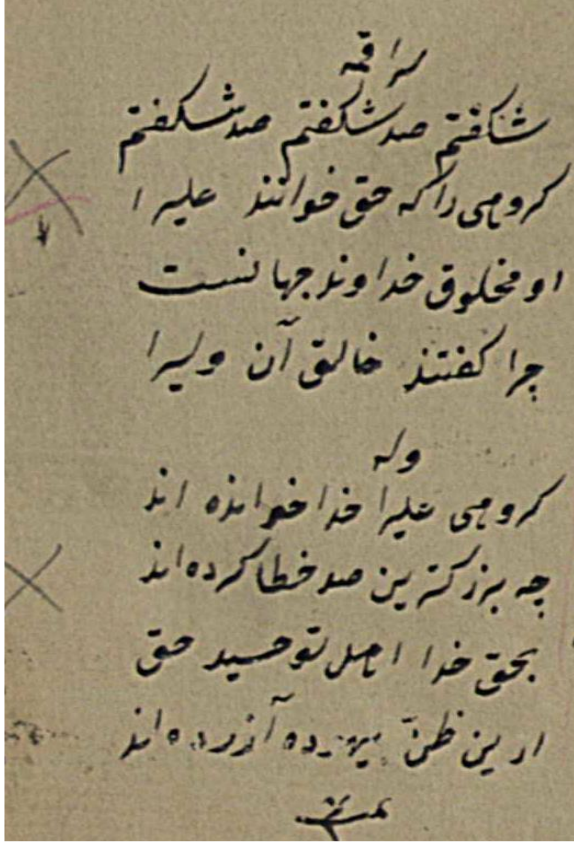 لراقمه
شگفتم صد شگفتم صد شگفتم
گروهی را که حق خوانند علیرا
او مخلوق خداوند جهانست
چرا گفتند خالق آن ولیرا
وله
گروهی علیرا خدا خوانده اند
چه بزرگترین صد خطا کرده‌اند
بحق خدا اهل توحید حق
ازین ظنّ بیهوده آزرده اند